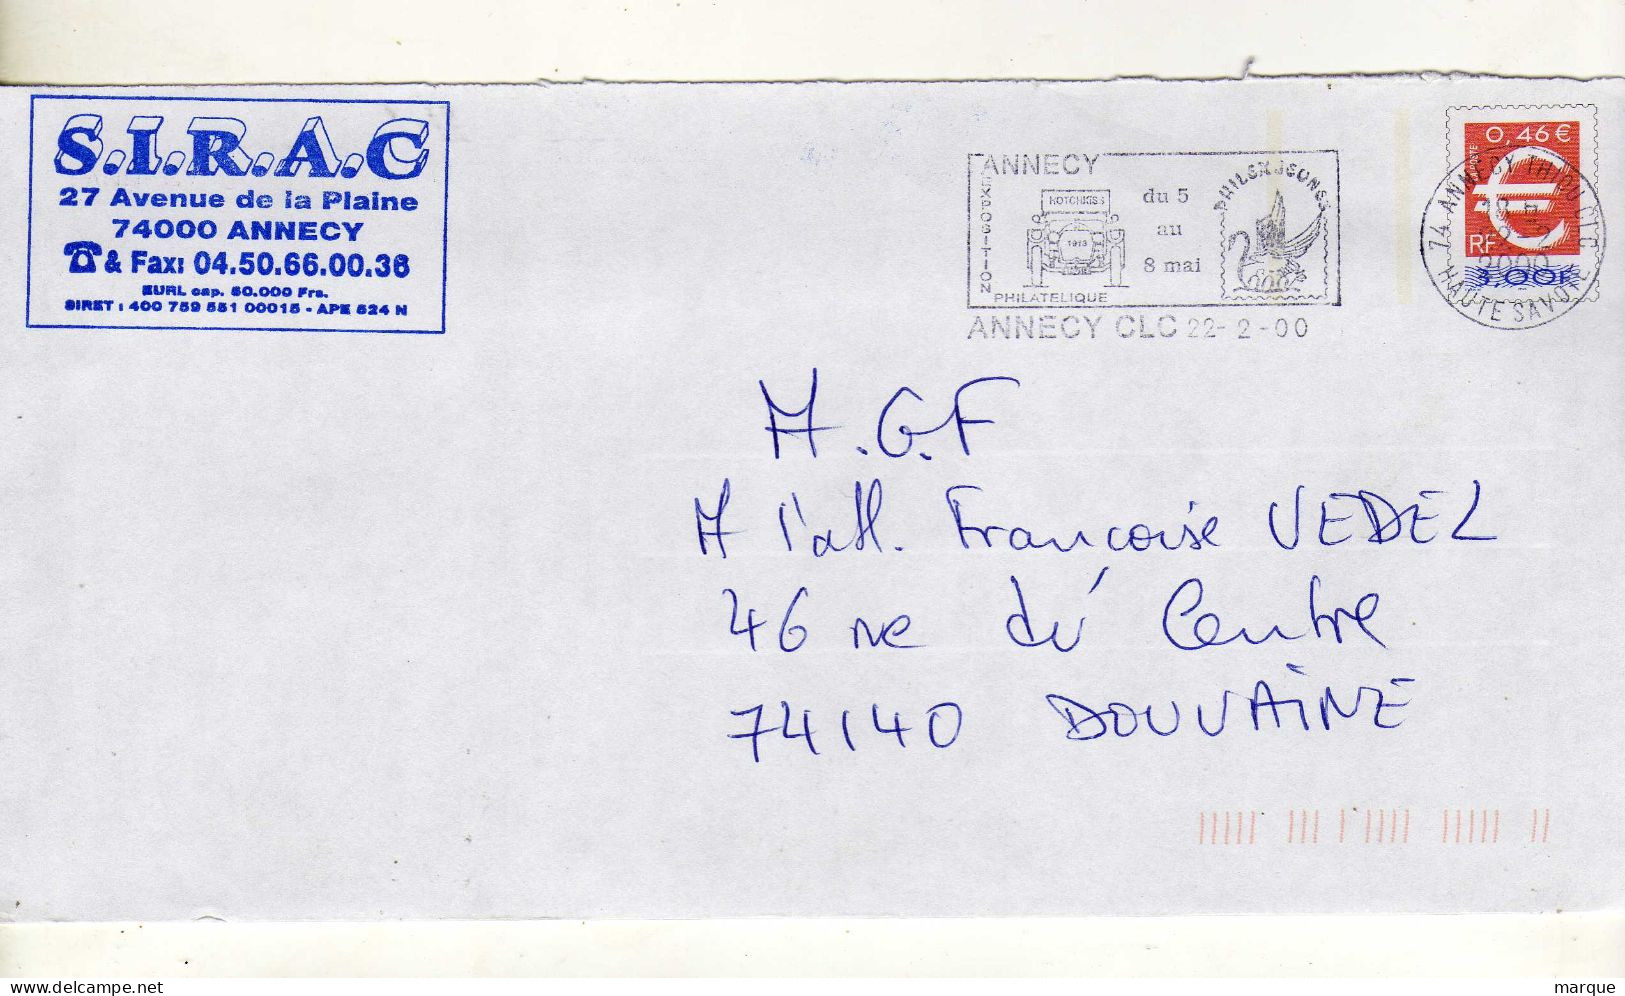 S.I.R.A.C
27 Avenue de la Plaine
74000 ANNECY
☎ & Fax: 04.50.66.00.38
EURL cap. 50.000 Frs.
SIRET : 400 759 551 00015 - APE 524 N
ANNECY
EXPOSITION
PHILATELIQUE
HOTCHKISS
1913
du 5
au
8 mai
PHILEX JEUNES
ANNECY CLC 22-2-00
0,46 €
LA POSTE
RF
3,00F
74 ANNECY THIOU CLC
2000
HAUTE SAVOIE
M.G.F
A l'att. Francoise VEDEL
46 rue du Centre
74140 DOUVAINE
marque